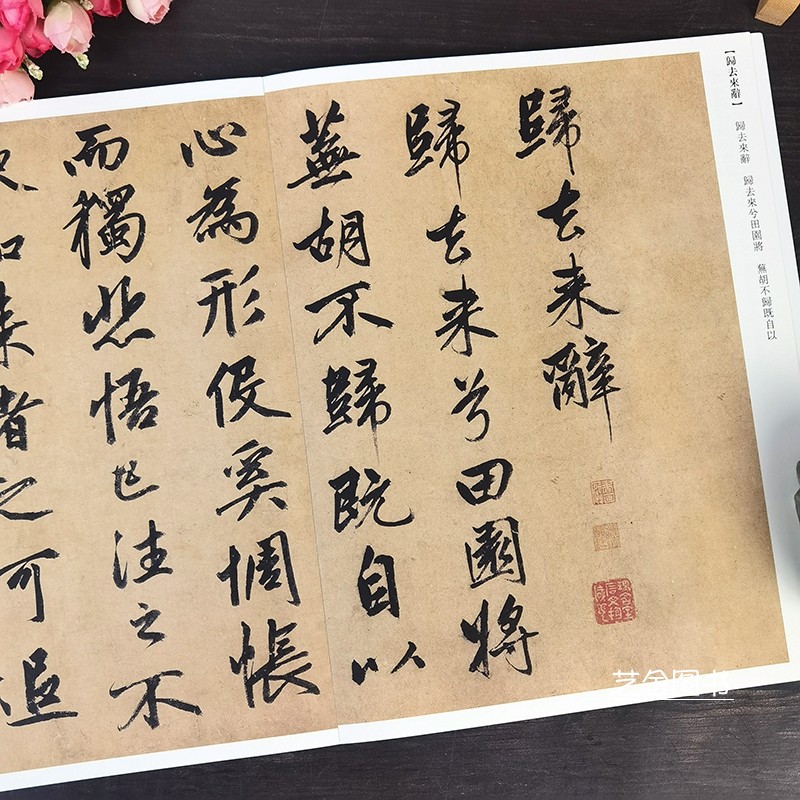 【歸去來辭】 歸去來辭 歸去來兮田園將 蕪胡不歸既自以
歸去来辭
歸去来兮田園將
蕪胡不歸既自以
心為形役奚惆悵
而獨悲悟已往之不
知来者之可追
艺金图书